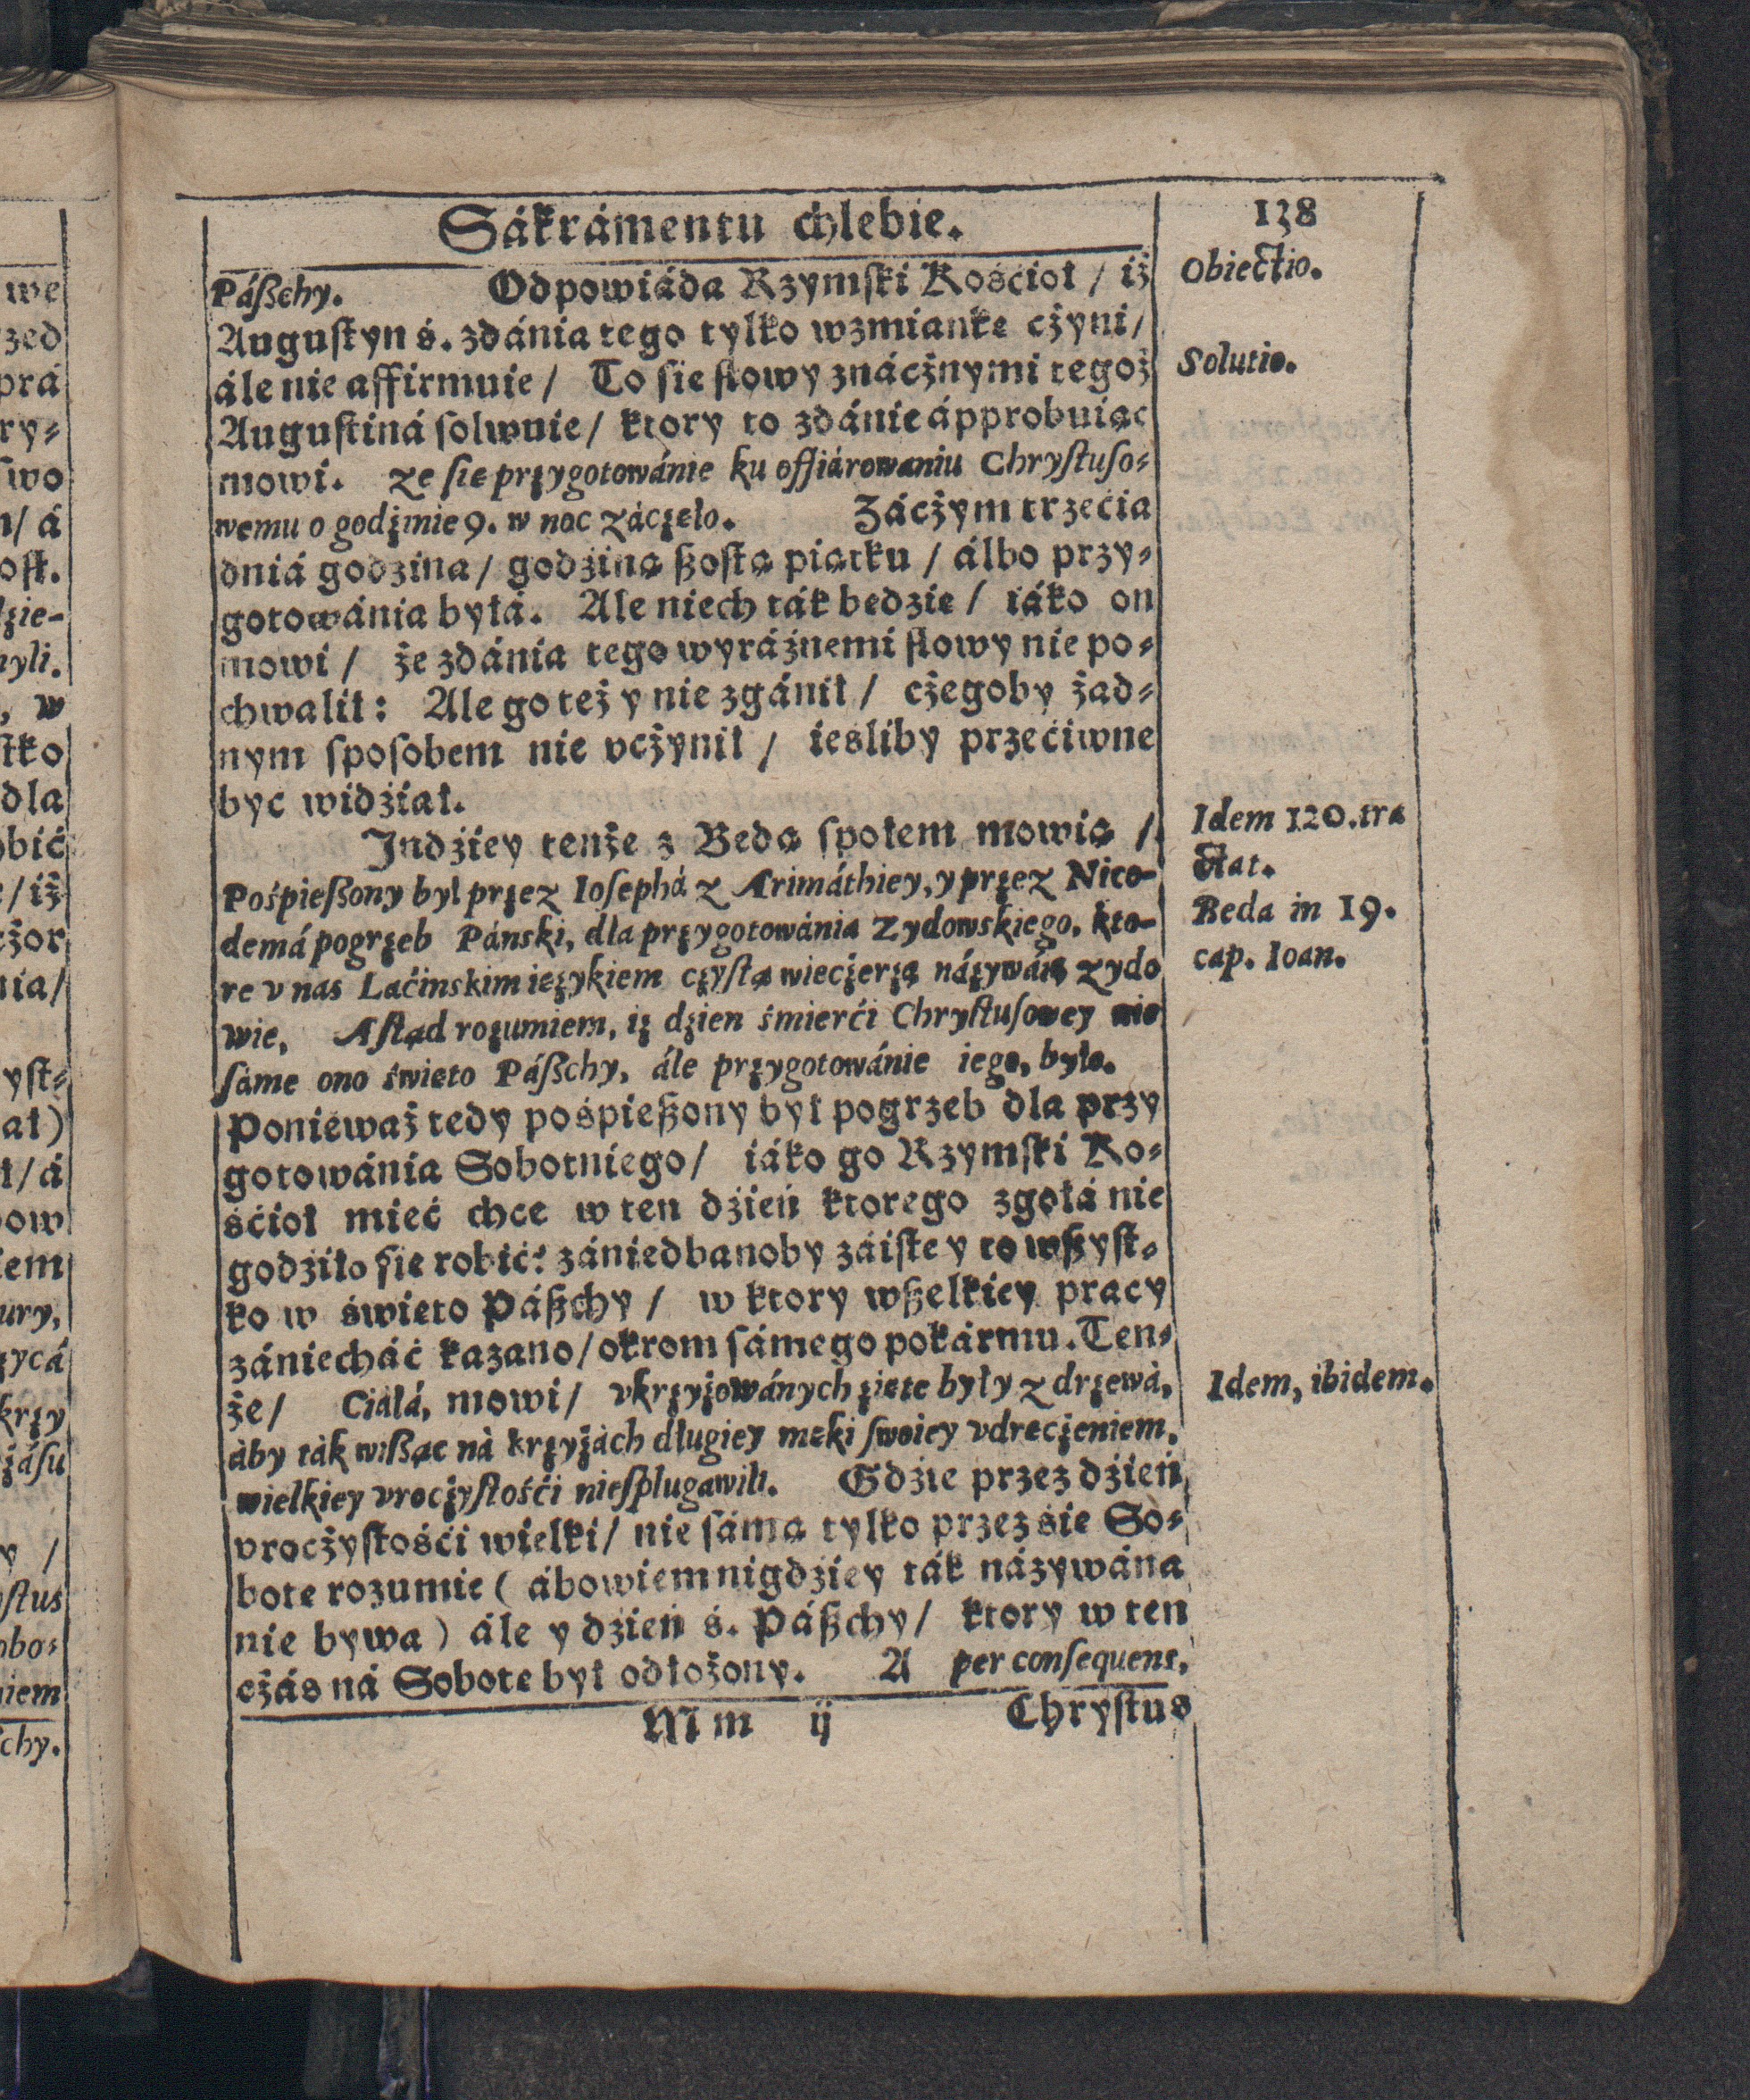 Sákrámentu chlebie.
138
Páßchy. Odpowiáda Rzymſki Kośćioł / iż
Obiectio.
Auguſtyn ś. zdánia tego tylko wzmianke cżyni /
ále nie affirmuie / To ſie ſłowy znácżnymi tegoż
Solutio.
Auguſtiná ſolwuie / ktory to zdánie ápprobuiąc
mowi. Ze ſie przygotowánie ku offiárowaniu Chryſtuſo⸗
wemu o godźinie 9. w noc záczęło. Zácżym trzećia
dniá godzina / godźiną ßoſtą piątku / álbo przy⸗
gotowánia byłá. Ale niech ták bedzie / iáko on
mowi / że zdánia tego wyráźnemi ſłowy nie po⸗
chwalił: Ale go też y nie zgánił / cżegoby żad⸗
nym ſpoſobem nie vcżynił / iesliby przećiwne
być widźiał.
Jndźiey tenże z Bedą ſpołem mowią /
Idem 120.tra
Pośpießony był przez Ioſephá z Arimáthiey, y przez Nico-
ctat.
demá pogrzeb Pánski, dla przygotowánia Zydowskiego, kto-
Beda in 19.
re v nas Laćinskim ięzykiem czyſtą wieczerzą názywáią zydo
cap. Ioan.
wie, A ſtąd rozumiem, iż dzien śmierći Chryſtuſowey nie
ſáme ono święto Páßchy, ále przygotowánie iego, było.
Ponieważ tedy pośpießony był pogrzeb dla przy
gotowánia Sobotniego / iáko go Rzymſki Ko⸗
śćioł mieć chce w ten dźień ktorego zgołá nie
godźiło ſie robić: zániedbanoby záiſte y to wßyſt⸗
ko w święto Páßchy / w ktory wßelkiey pracy
zániecháć kazano / okrom ſámego pokármu. Ten⸗
że / Ciáłá, mowi / vkrzyżowánych zięte były z drzewá,
Idem, ibidem.
áby ták wißąc ná krzyżách długiey męki ſwoiey vdręczeniem,
wielkiey vroczyſtośći nieſplugawili. Gdźie przez dźień
vrocżyſtośći wielki / nie ſámą tylko przez śie So⸗
botę rozumie ( ábowiem nigdźiey ták názywána
nie bywa ) ále y dźień ś. Páßchy / ktory w ten
cżás ná Sobotę był odłożony. A per conſequens,
Mm ij Chryſtus